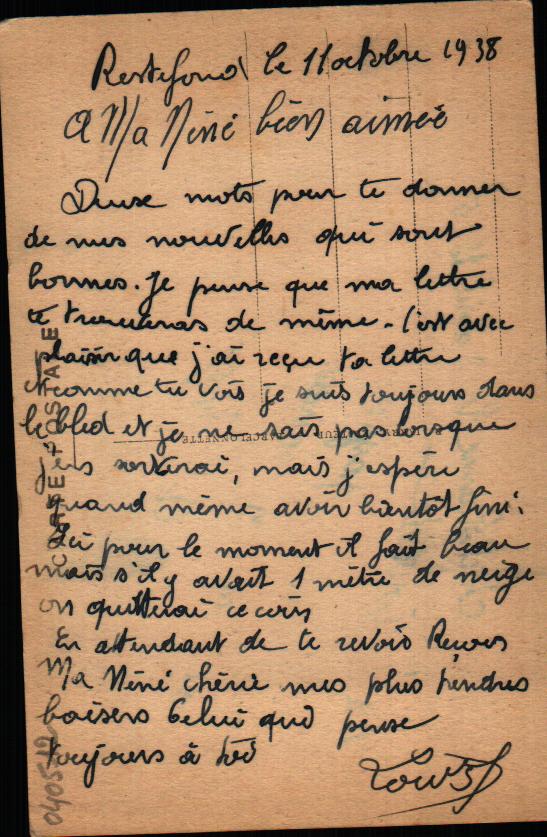 Restefond le 11 octobre 1938
A Ma Néné bien aimée
Deuse mots pour te donner
de mes nouvelles qui sont
bonnes. Je pense que ma lettre
te trouveras de même. C'est avec
plaisir que j'ai reçu ta lettre
et comme tu vois je suis toujours dans
le bled et je ne sais pas lorsque
j'en sortirai, mais j'espère
quand même avoir bientôt fini.
Ici pour le moment il fait beau
mais s'il y avait 1 mètre de neige
on quitterai ce coin
En attendant de te revois Recois
Ma Néné chérie mes plus tendres
baisers Celui qui pense
toujours à toi
Louis
CARTE POSTALE
BARCELONNETTE